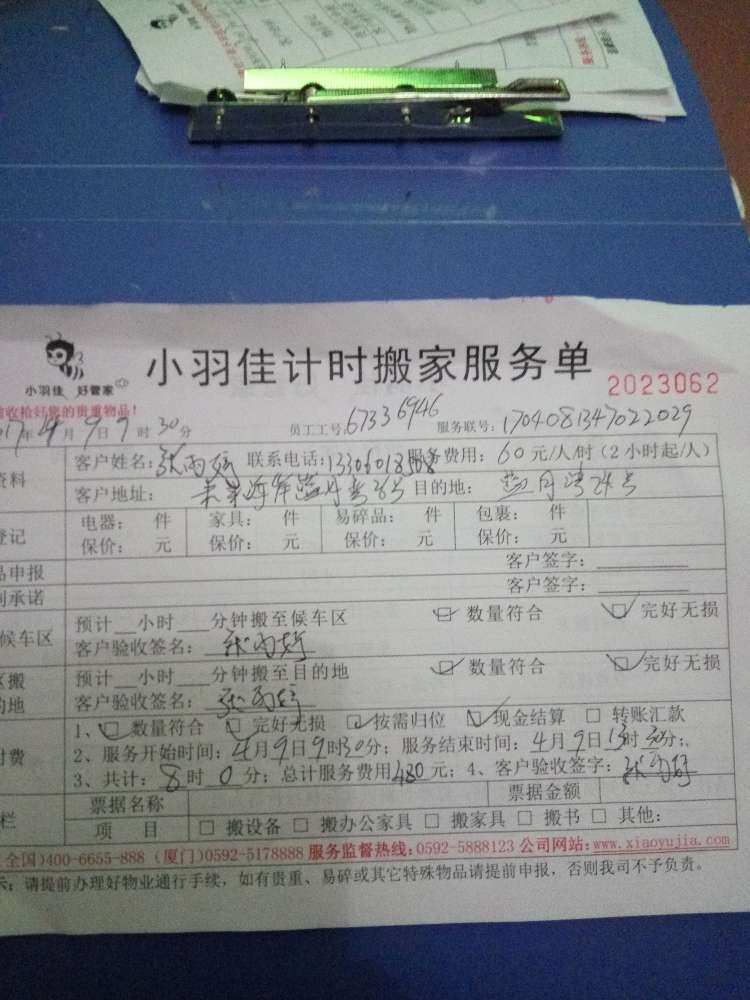 小羽佳 好管家
小羽佳计时搬家服务单
2023062
收拾好您的贵重物品！
17年4月9日9时30分 员工工号:67336946 服务联号:1704081347022029
资料 客户姓名: 联系电话: 服务费用: 60元/人/时（2小时起/人）
客户地址: 目的地: 蓝月湾24号
登记 电器: 件 家具: 件 易碎品: 件 包裹: 件
保价: 元 保价: 元 保价: 元 保价: 元
品申报 客户签字:
制承诺 客户签字:
候车区 预计__小时___分钟搬至候车区 数量符合 完好无损
客户验收签名:
搬 预计__小时___分钟搬至目的地 数量符合 完好无损
的地 客户验收签名:
付费 1、 数量符合 完好无损 按需归位 现金结算 转账汇款
2、服务开始时间: 4月9日9时30分; 服务结束时间: 4月9日13时30分;
3、共计: 8时0分; 总计服务费用480元; 4、客户验收签字:
栏 票据名称 票据金额
项 目 搬设备 搬办公家具 搬家具 搬书 其他:
全国)400-6655-888 (厦门)0592-5178888 服务监督热线: 0592-5888123 公司网站: www.xiaoyujia.com
示: 请提前办理好物业通行手续，如有贵重、易碎或其它特殊物品请提前申报，否则我司不予负责。